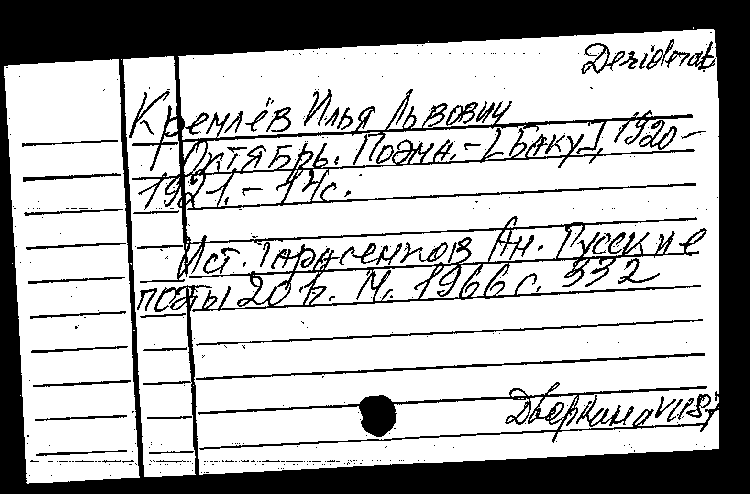 Desiderat
Кремлёв Илья Львович
Октябрь. Поэма. - [Баку], 1920-
1921. - 14с.
Ист. Тарасенков Ан. Русские
поэты 20 в. М. 1966 с. 332
Дворкина VII 87